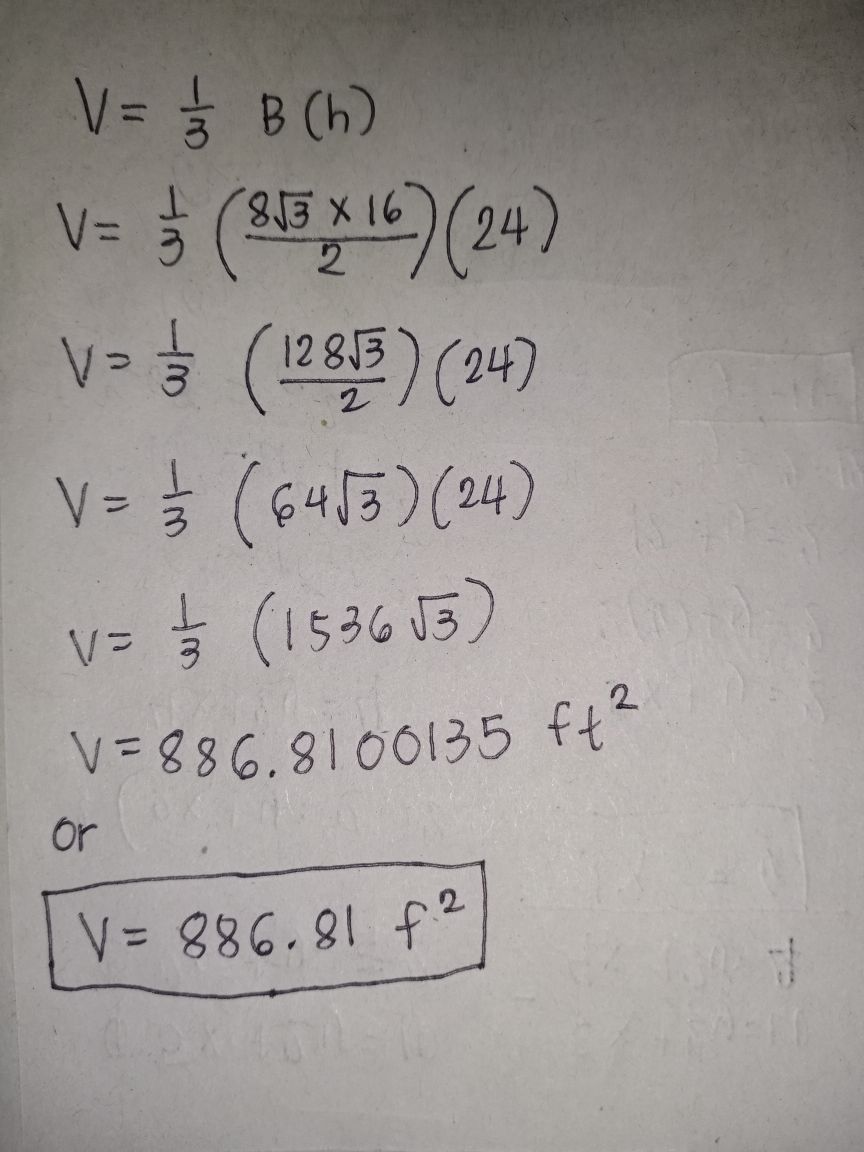 V= 1/3 B (h)
V= 1/3 (8√3 x 16/2)(24)
V= 1/3 (128√3/2)(24)
V= 1/3 (64√3)(24)
V= 1/3 (1536√3)
V=886.8100135 ft²
or
V= 886.81 f²